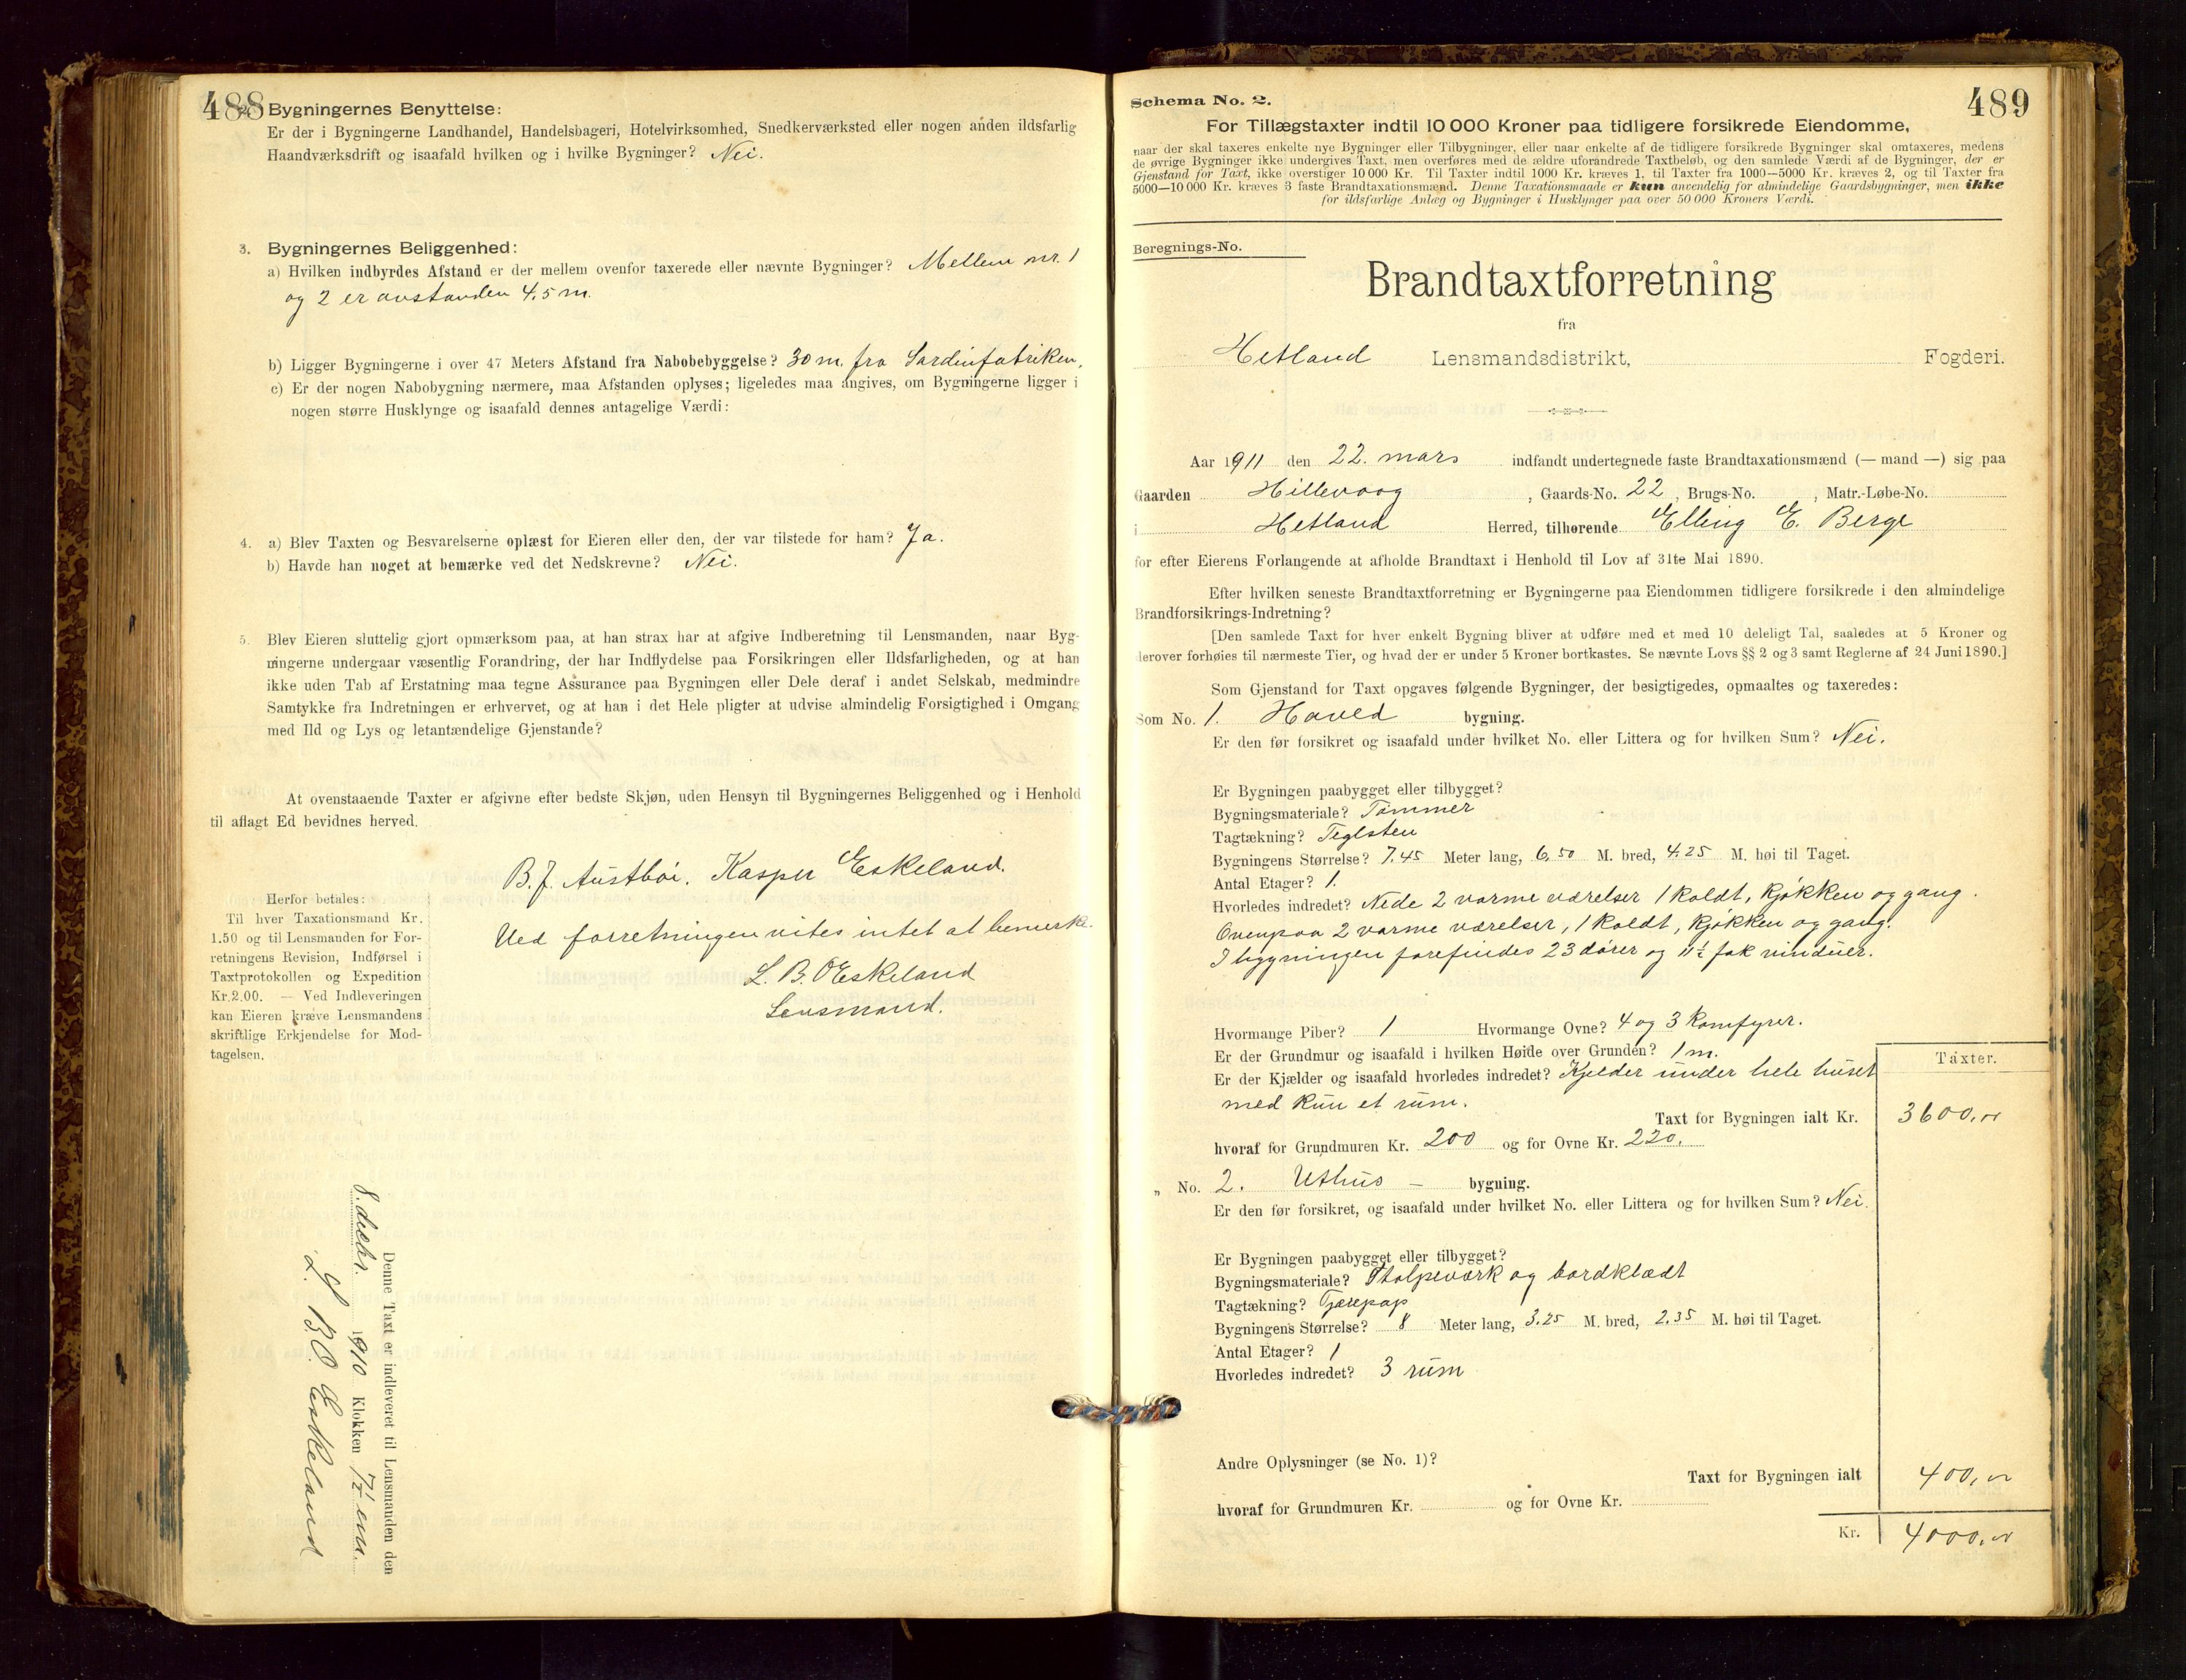 488
2. Bygningernes Benyttelse:
Er der i Bygningerne Landhandel, Handelsbageri, Hotelvirksomhed, Snedkerværksted eller nogen anden ildsfarlig
Haandværksdrift og isaafald hvilken og i hvilke Bygninger? Nei.
3. Bygningernes Beliggenhed:
a) Hvilken indbyrdes Afstand er der mellem ovenfor taxerede eller nævnte Bygninger? Mellem nr. 1
og 2 er avstanden 4,5 m.
b) Ligger Bygningerne i over 47 Meters Afstand fra Nabobebyggelse? 30 m. fra Sardinfabriken.
c) Er der nogen Nabobygning nærmere, maa Afstanden oplyses; ligeledes maa angives, om Bygningerne ligger i
nogen større Husklynge og isaafald dennes antagelige Værdi:
4. a) Blev Taxten og Besvarelserne oplæst for Eieren eller den, der var tilstede for ham? Ja.
b) Havde han noget at bemærke ved det Nedskrevne? Nei.
5. Blev Eieren sluttelig gjort opmærksom paa, at han strax har at afgive Indberetning til Lensmanden, naar Byg-
ningerne undergaar væsentlig Forandring, der har Indflydelse paa Forsikringen eller Ildsfarligheden, og at han
ikke uden Tab af Erstatning maa tegne Assurance paa Bygningen eller Dele deraf i andet Selskab, medmindre
Samtykke fra Indretningen er erhvervet, og at han i det Hele pligter at udvise almindelig Forsigtighed i Omgang
med Ild og Lys og letantændelige Gjenstande?
At ovenstaaende Taxter er afgivne efter bedste Skjøn, uden Hensyn til Bygningernes Beliggenhed og i Henhold
til aflagt Ed bevidnes herved.
B. J. Austbøi. Kasper Eskeland.
Ved forretningen vites intet at bemerke.
L. B. O Eskeland
Lensmand.
Herfor betales:
Til hver Taxationsmand Kr.
1.50 og til Lensmanden for For-
retningens Revision, Indførsel i
Taxtprotokollen og Expedition
Kr. 2.00. — Ved Indleveringen
kan Eieren kræve Lensmandens
skriftlige Erkjendelse for Mod-
tagelsen.
Denne Taxt er indleveret til Lensmanden den
8. decbr. 1910 Klokken 7½ em.
L. B. O. Eskeland
Schema No. 2.
489
For Tillægstaxter indtil 10 000 Kroner paa tidligere forsikrede Eiendomme,
naar der skal taxeres enkelte nye Bygninger eller Tilbygninger, eller naar enkelte af de tidligere forsikrede Bygninger skal omtaxeres, medens
de øvrige Bygninger ikke undergives Taxt, men overføres med de ældre uforandrede Taxtbeløb, og den samlede Værdi af de Bygninger, der er
Gjenstand for Taxt, ikke overstiger 10 000 Kr. Til Taxter indtil 1000 Kr. kræves 1, til Taxter fra 1000—5000 Kr. kræves 2, og til Taxter fra
5000—10 000 Kr. kræves 3 faste Brandtaxationsmænd. Denne Taxationsmaade er kun anvendelig for almindelige Gaardsbygninger, men ikke
for ildsfarlige Anlæg og Bygninger i Husklynger paa over 50 000 Kroners Værdi.
Beregnings-No.
Brandtaxtforretning
fra
Hetland Lensmandsdistrikt, Fogderi.
Aar 1911 den 22. mars indfandt undertegnede faste Brandtaxationsmænd (— mand —) sig paa
Gaarden Hillevaag, Gaards-No. 22, Brugs-No. , Matr.-Løbe-No.
i Hetland Herred, tilhørende Elling E. Berge
for efter Eierens Forlangende at afholde Brandtaxt i Henhold til Lov af 31te Mai 1890.
Efter hvilken seneste Brandtaxtforretning er Bygningerne paa Eiendommen tidligere forsikrede i den almindelige
Brandforsikrings-Indretning?
[Den samlede Taxt for hver enkelt Bygning bliver at udføre med et med 10 deleligt Tal, saaledes at 5 Kroner og
derover forhøies til nærmeste Tier, og hvad der er under 5 Kroner bortkastes. Se nævnte Lovs §§ 2 og 3 samt Reglerne af 24 Juni 1890.]
Som Gjenstand for Taxt opgaves følgende Bygninger, der besigtigedes, opmaaltes og taxeredes:
Som No. 1. Hoved bygning.
Er den før forsikret og isaafald under hvilket No. eller Littera og for hvilken Sum? Nei.
Er Bygningen paabygget eller tilbygget?
Bygningsmateriale? Tømmer
Tagtækning? Teglsten
Bygningens Størrelse? 7,45 Meter lang, 6,50 M. bred, 4,25 M. høi til Taget.
Antal Etager? 1.
Hvorledes indredet? Nede 2 varme værelser 1 koldt, kjøkken og gang.
Ovenpaa 2 varme værelser, 1 koldt, kjøkken og gang.
I bygningen forefindes 23 dører og 11½ fak vinduer.
Hvormange Piber? 1 Hvormange Ovne? 4 og 3 komfyrer.
Er der Grundmur og isaafald i hvilken Høide over Grunden? 1 m.
Taxter.
Er der Kjælder og isaafald hvorledes indredet? Kjelder under hele huset
med kun et rum.
Taxt for Bygningen ialt Kr. 3600,00
hvoraf for Grundmuren Kr. 200 og for Ovne Kr. 220.
„ No. 2. Uthus — bygning.
Er den før forsikret, og isaafald under hvilket No. eller Littera og for hvilken Sum? Nei.
Er Bygningen paabygget eller tilbygget?
Bygningsmateriale? Stolpeværk og bordklædt
Tagtækning? Tjærepap
Bygningens Størrelse? 8 Meter lang, 3,25 M. bred, 2,35 M. høi til Taget.
Antal Etager? 1
Hvorledes indredet? 3 rum
Andre Oplysninger (se No. 1)?
Taxt for Bygningen ialt 400,00
hvoraf for Grundmuren Kr. og for Ovne Kr.
Kr. 4000,00